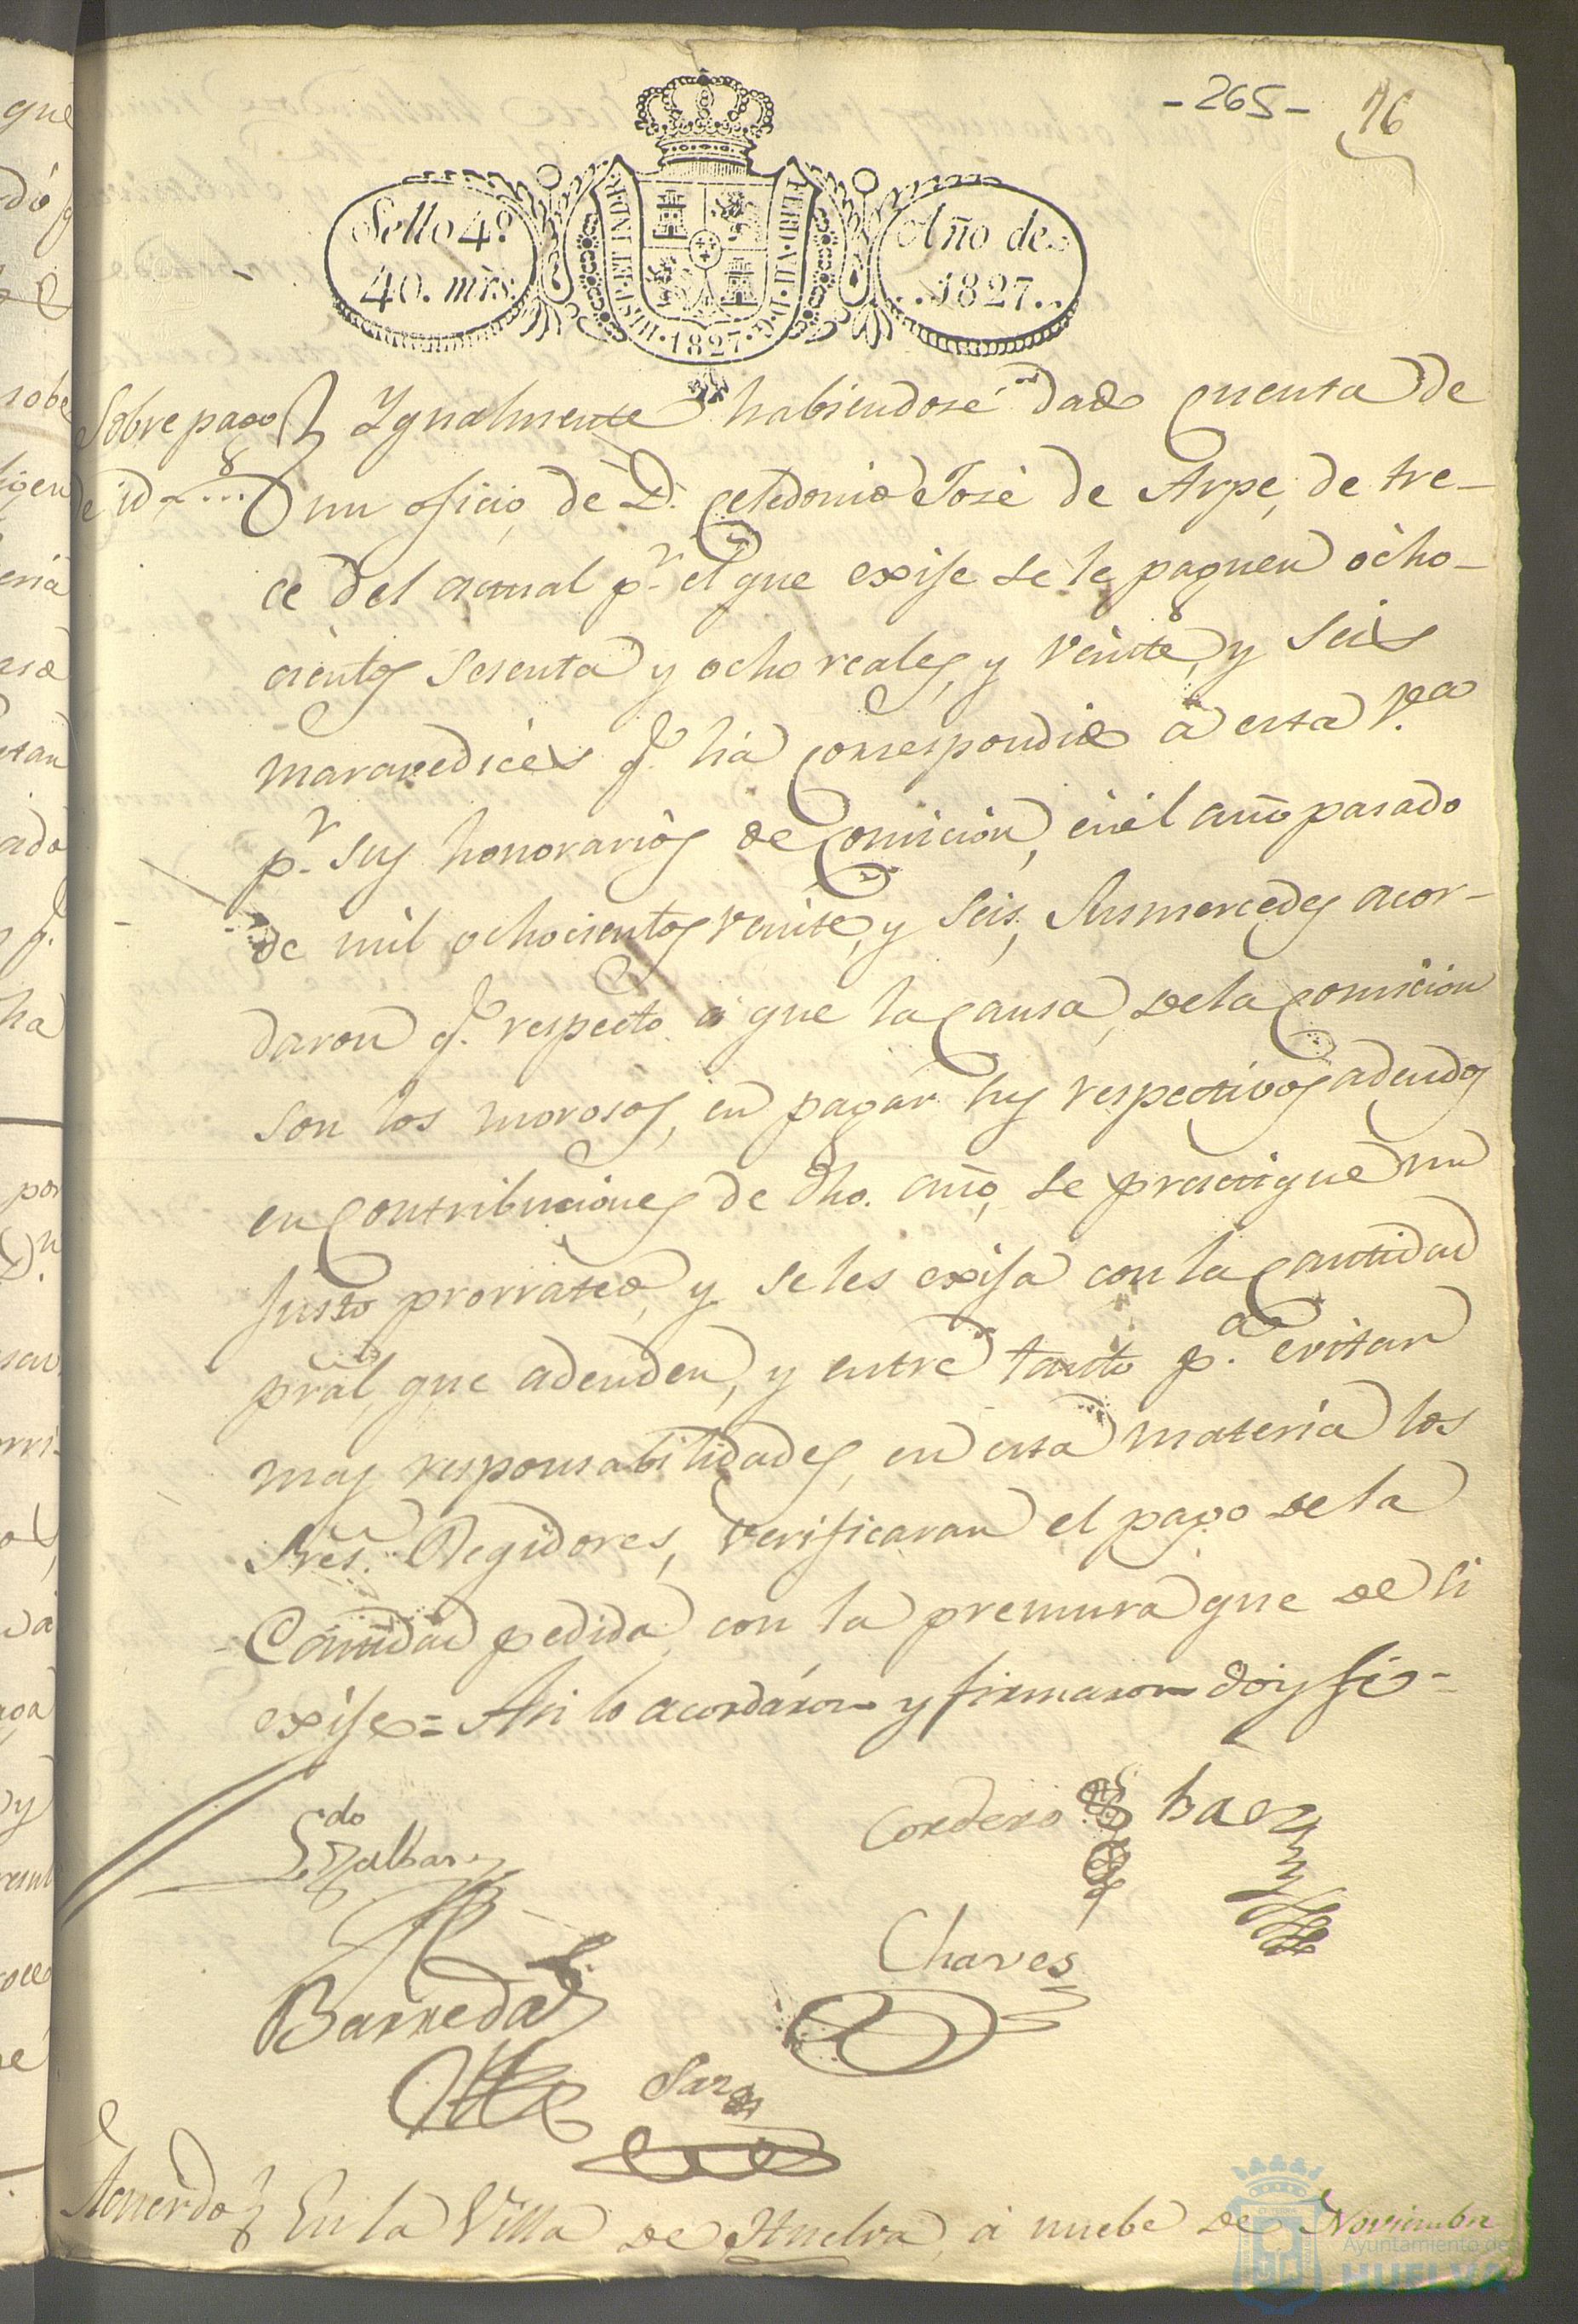 -265- 76
Sello 4º. 40. mrs.
HISP. ET IND. R. FERD. VII. D. G. 1827
Año de 1827
Sobre pago
de id
Ygualmente habiendose dado cuenta de
un oficio de D. Celedonio José de Arpe, de tre-
ce del actual pr. el que exije se le paguen ocho-
cientos sesenta y ocho reales, y veinte, y seis
maravedices q. há correspondido á esta Va.
pr. sus honorarios de Comicion, en el año pasado
de mil ochocientos veinte, y seis, Susmercedes acor-
daron q. respecto á que la Causa, dela Comicion
son los morosos, en pagar sus respectivos adeudos
en Contribuciones de dho. año, se practique un
justo prorrateo, y seles exija con la Cantidad
pral, que adeuden, y entre tanto pa. evitar
mas responsabilidades, en esta materia los
Sres. Regidores, verificaran el pago dela
Cantidad pedida, con la premura que de si
exije= Asi lo acordáron y firmaron doy fe-
Ldo
Cordero Baez
Chaves
Barreda
Acuerdo En la Villa de Huelva, á nuebe de Noviembre
Ayuntamiento de
HUELVA